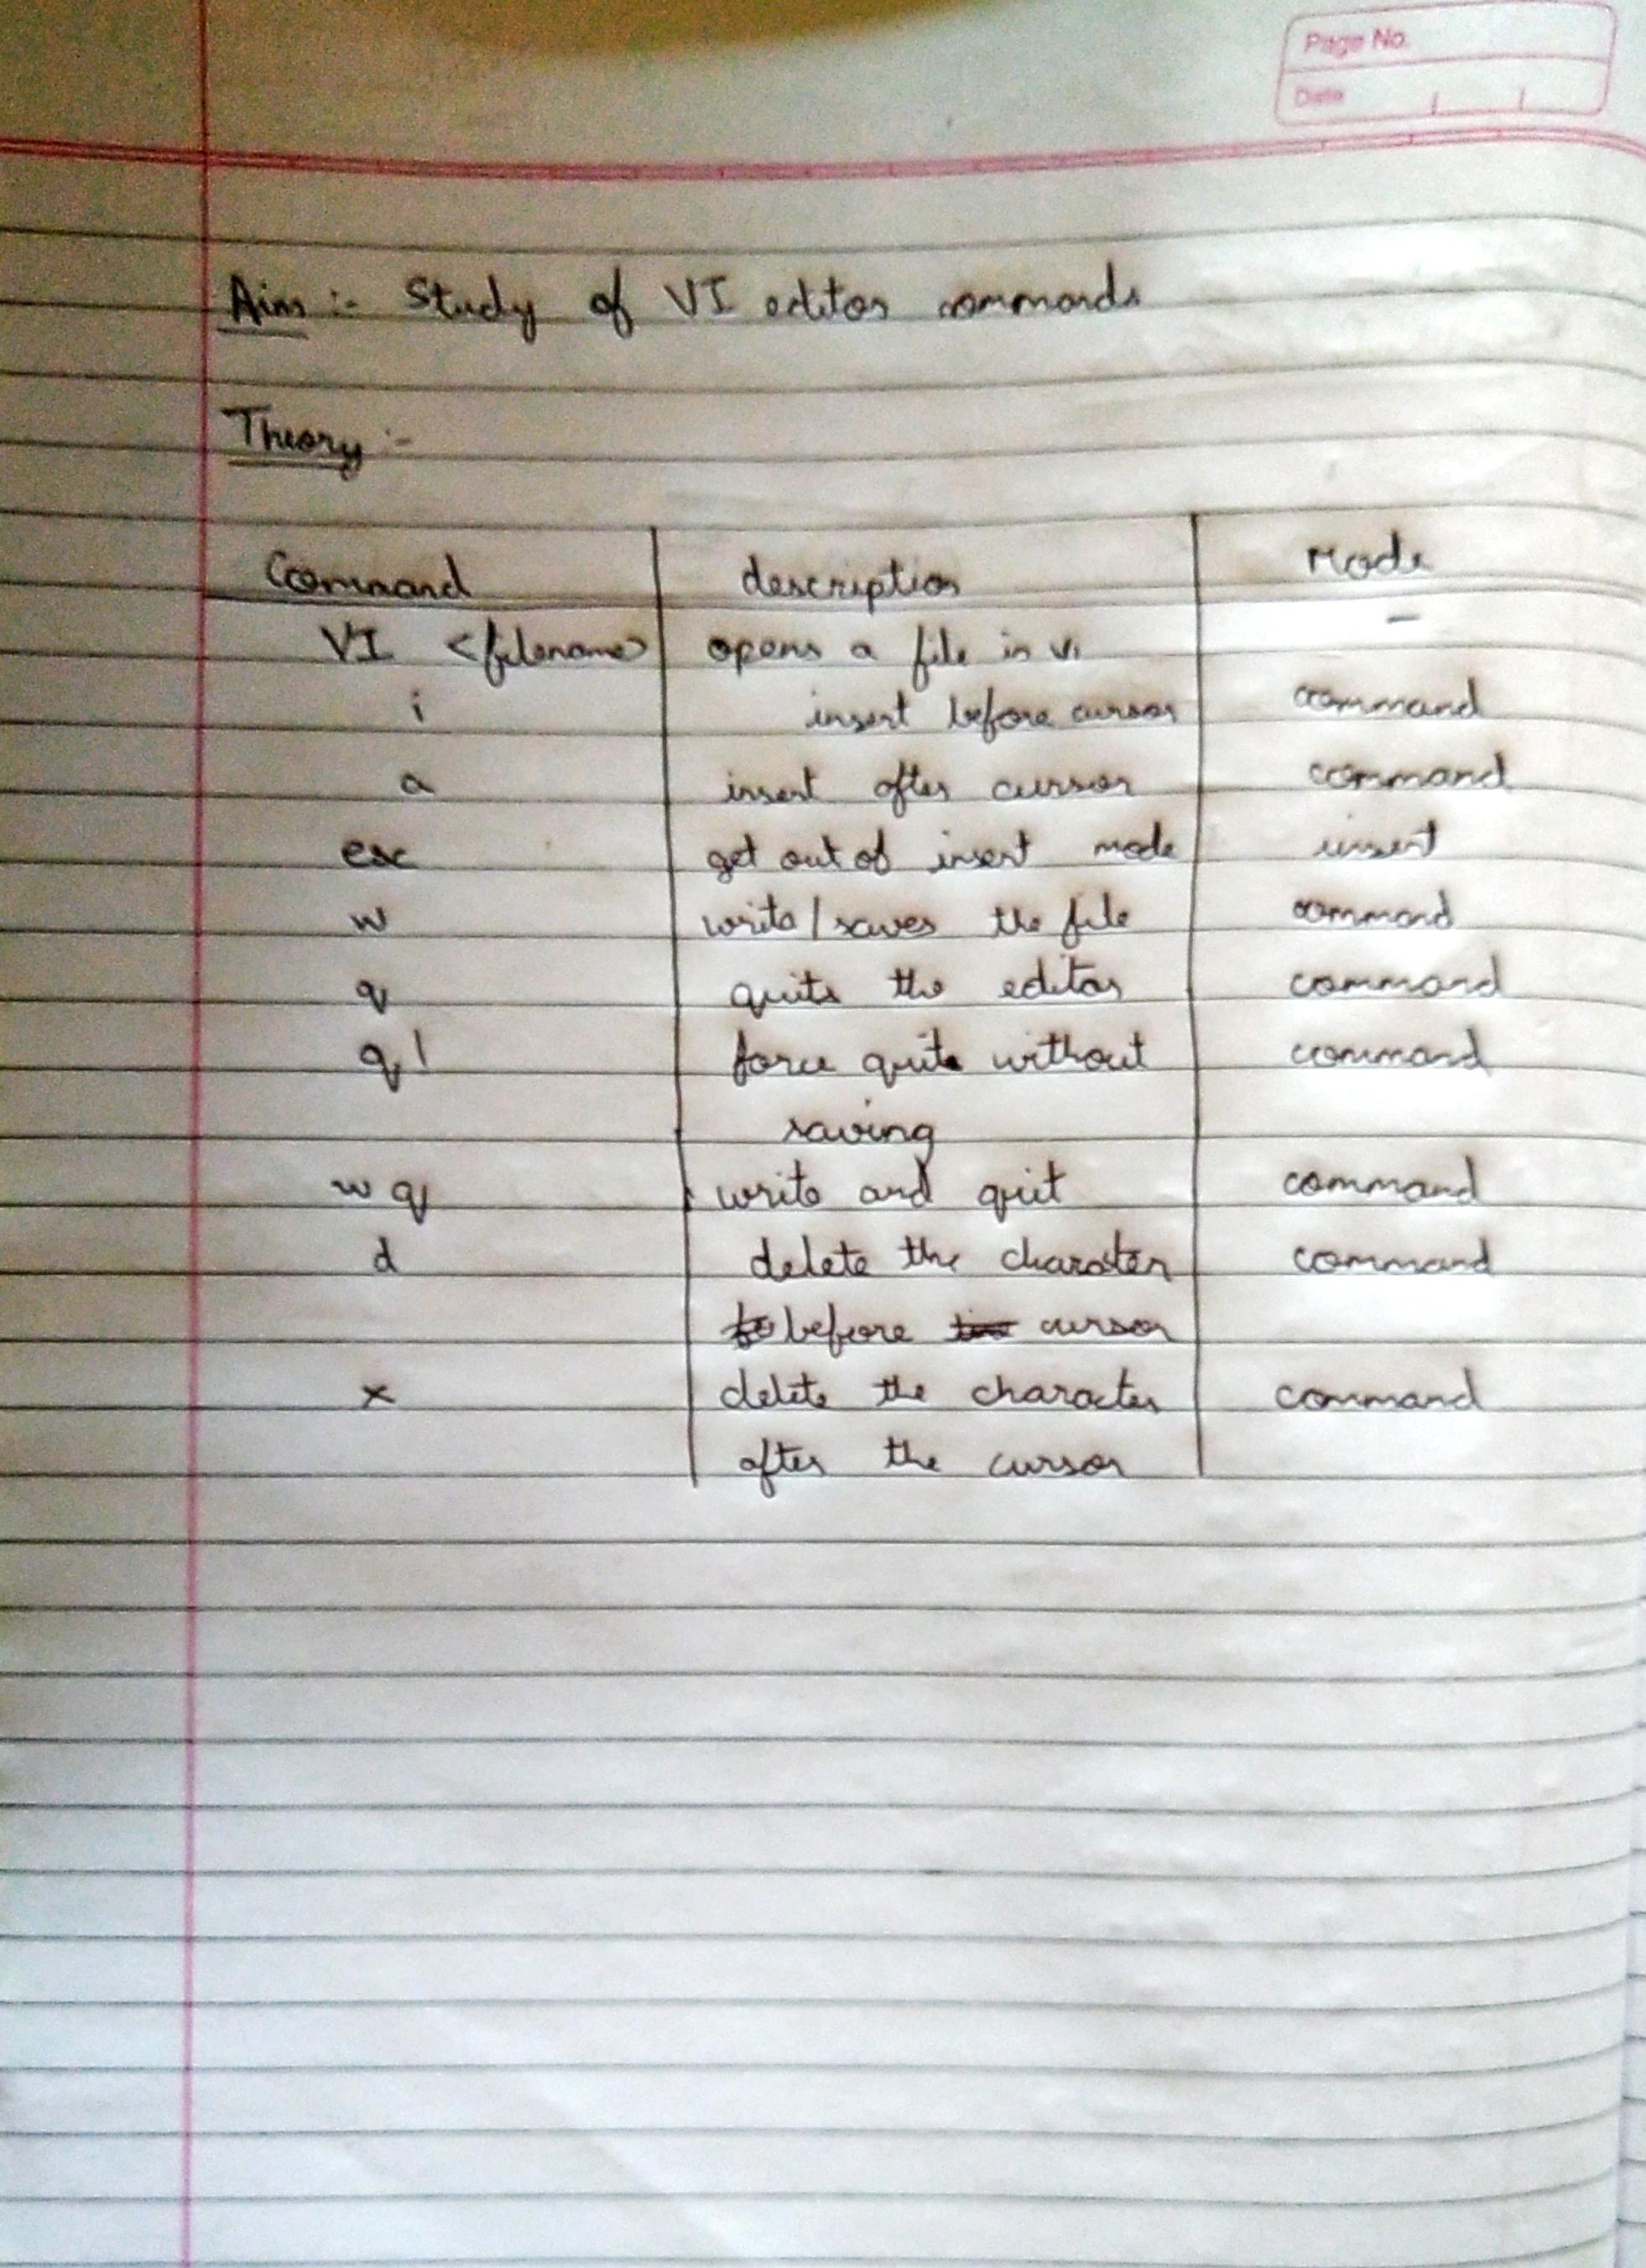 Page No.
Date
Aim :- Study of VI editor commands
Theory :-
Command description Mode
VI <filename> opens a file in vi -
i insert before cursor command
a insert after cursor command
esc get out of insert mode insert
w write/saves the file command
q quits the editor command
q! force quits without command
saving
wq write and quit command
d delete the charater command
before cursor
x delete the character command
after the cursor